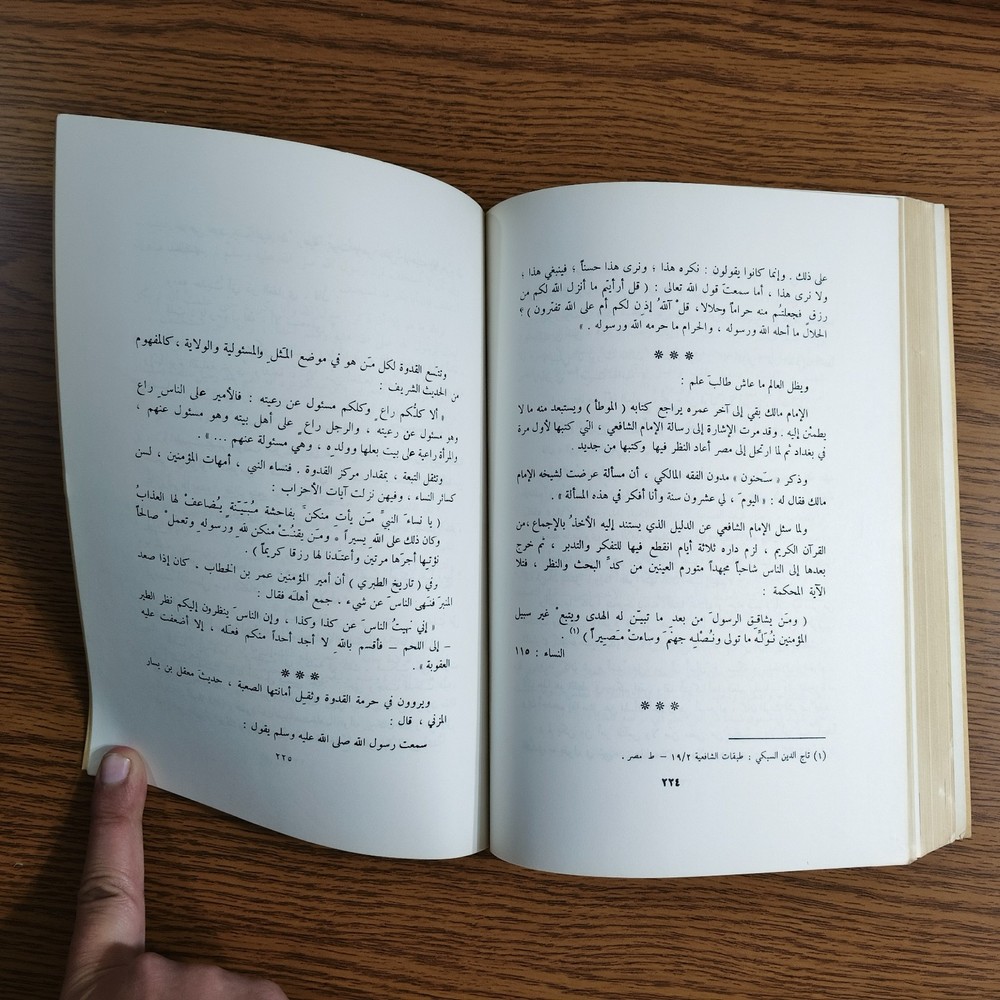 على ذلك . وإنما كانوا يقولون : نكره هذا ؛ ونرى هذا حسناً ؛ فينبغي هذا ؛
ولا نرى هذا ، أما سمعتَ قول الله تعالى : ( قل أرأيتم ما أنزل الله لكم من
رزق فجعلتُم منه حراماً وحلالا، قلْ آللهُ إذِن لكم أم على الله تفترون ) ؟
الحلالُ ما أحله الله ورسوله ، والحرام ما حرمه الله ورسوله . »
❊ ❊ ❊
ويظل العالم ما عاش طالبَ علم :
الإمام مالك بقي إلى آخر عمره يراجع كتابه ( الموطأ ) ويستبعد منه ما لا
يطمئن إليه . وقد مرت الإشارة إلى رسالة الإمام الشافعي ، التي كتبها لأول مرة
في بغداد ثم لما ارتحل إلى مصر أعاد النظر فيها وكتبها من جديد .
وذكر « سَحنون » مدون الفقه المالكي ، أن مسألة عرضت لشيخه الإمام
مالك فقال له : « اليومَ ، لي عشرون سنة وأنا أفكر في هذه المسألة » .
ولما سئل الإمام الشافعي عن الدليل الذي يستند إليه الأخذُ بالإجماع ،من
القرآن الكريم ، لزم داره ثلاثة أيام انقطع فيها للتفكر والتدبر ، ثم خرج
بعدها إلى الناس شاحباً مجهداً متورم العينين من كدِّ البحث والنظر ، فتلا
الآية المحكمة :
( ومَن يشاققِ الرسولَ من بعد ما تبيّن له الهدى ويتبعْ غير سبيل
المؤمنين نُوَلِّه ما تولى ونُصْلِه جهنمَ وساءتْ مَصِيراً ) (١) .
النساء : ١١٥
❊ ❊ ❊
(١) تاج الدين السبكي : طبقات الشافعية ١٩/٢ – ط مصر .
٢٢٤
وتتسع القدوة لكل مَن هو في موضع المَثل والمسئولية والولاية ، كالمفهوم
من الحديث الشريف :
« ألا كلُّكم راع ٍ وكلكم مسئول عن رعيته : فالأمير على الناس راع
وهو مسئول عن رعيته ، والرجل راع ٍ على أهل بيته وهو مسئول عنهم ،
والمرأة راعية على بيت بعلها وولدِه ، وهي مسئولة عنهم ... » .
وتثقل التبعة ، بمقدار مركز القدوة . فنساء النبي ، أمهات المؤمنين ، لسن
كسائر النساء ، وفيهن نزلت آيات الأحزاب :
( يا نساءَ النبيِّ مَن يأتِ منكن َّ بفاحشة مُبَيِّنةٍ يُضاعفْ لها العذابُ
وكان ذلك على اللهِ يسيراً ٭ ومَن يقنُتْ منكن للهِ ورسولِه وتعملْ صالحاً
نؤتِها أجرَها مرتين وأعتدنا لها رزقا كريماً ) .
وفي ( تاريخ الطبري ) أن أمير المؤمنين عمر بن الخطاب . كان إذا صعد
المنبرَ فنهى الناسَ عن شيء . جمع أهله فقال :
« إني نهيتُ الناسَ عن كذا وكذا ، وإن الناسَ ينظرون إليكم نظر الطير
– إلى اللحم – فأقسم باللهِ لا أجد أحداً منكم فعله ، إلا أضعفت عليه
العقوبة » .
❊ ❊ ❊
ويروون في حرمة القدوة وثقيل أمانتها الصعبة ، حديثَ معقل بن يسار
المزني ، قال :
سمعت رسول الله صلى الله عليه وسلم يقول :
٢٢٥